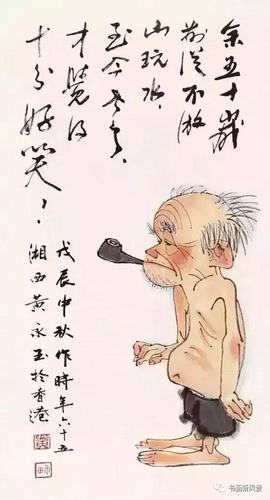 余五十歲
前從不游
山玩水，
至今老了，
才覺得
十分好笑，
戊辰中秋作時年六十五
湘西黄永玉於香港
书画新风景